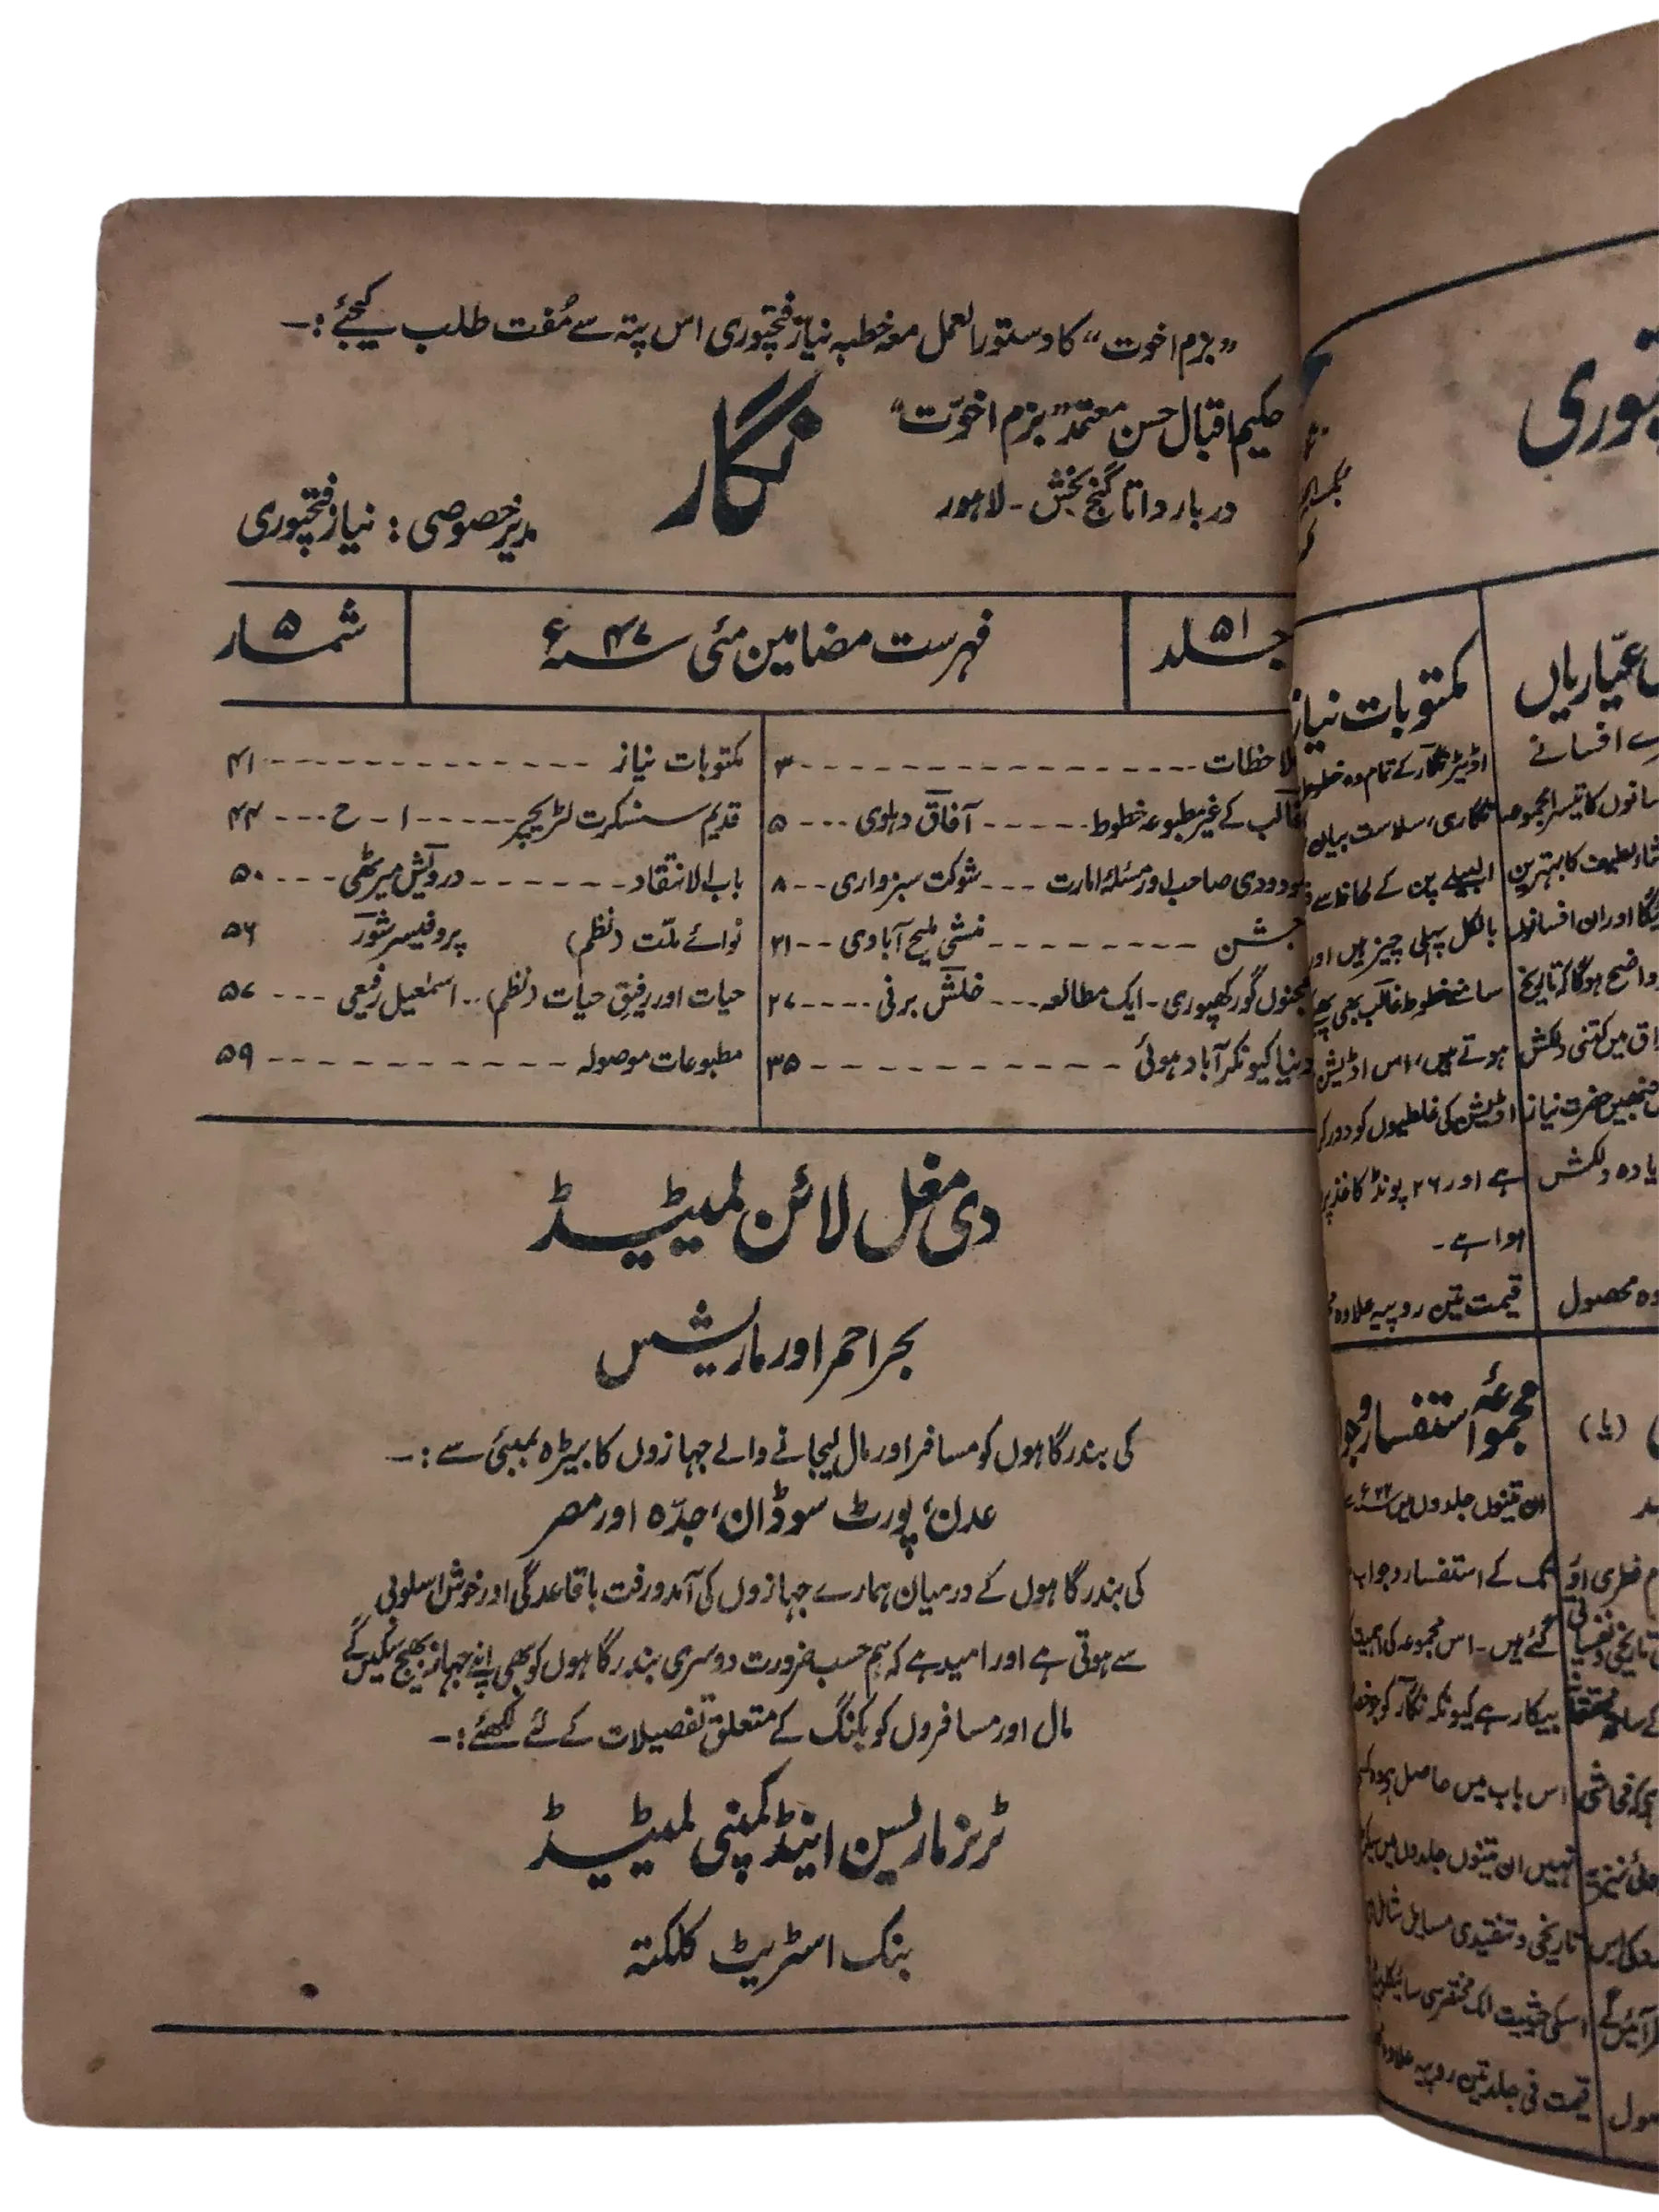 ”بزم اخوت“ کا دستور العمل معہ خطبہ نیاز فتحپوری اس پتہ سے مُفت طلب کیجئے :۔
حکیم اقبال حسن معتمد ”بزم اخوّت“
دربار داتا گنج بخش - لاہور
نگار
مدیر خصوصی : نیاز فتحپوری
جلد ۵۱
فہرست مضامین مئی سنہ ۴۷ء
شمار ۵
ملاحظات ۔۔۔ ۳
غالب کے غیر مطبوعہ خطوط ۔۔۔ آفاق دہلوی ۔۔۔ ۵
مودودی صاحب اور مسئلۂ امارت ۔۔۔ شوکت سبزواری ۔۔ ۸
جشن ۔۔۔ منشی ملیح آبادی ۔۔ ۲۱
مجنوں گورکھپوری - ایک مطالعہ ۔۔۔ خلش برنی ۔۔۔ ۲۷
دنیا کیونکر آباد ہوئی ۔۔۔ ۳۵
مکتوبات نیاز ۔۔۔ ۴۱
قدیم سنسکرت لٹریچر ۔۔۔ ا - ح ۔۔۔ ۴۴
باب الانتقاد ۔۔۔ درویش میرٹھی ۔۔۔ ۵۰
نوائے ملّت (نظم) پروفیسر شور ۵۶
حیات اور رفیق حیات (نظم) ۔۔ اسمٰعیل رفیعی ۔۔۔ ۵۷
مطبوعات موصولہ ۔۔۔ ۵۹
دی مغل لائن لمیٹیڈ
بحر احمر اور ماریشس
کی بندرگاہوں کو مسافر اور مال لیجانے والے جہازوں کا بیڑہ بمبئی سے :۔
عدن، پورٹ سوڈان، جدّہ اور مصر
کی بندرگاہوں کے درمیان ہمارے جہازوں کی آمد و رفت باقاعدگی اور خوش اسلوبی
سے ہوتی ہے اور امید ہے کہ ہم حسب ضرورت دوسری بندرگاہوں کو بھی اپنے جہاز بھیج سکیں گے
مال اور مسافروں کو بکنگ کے متعلق تفصیلات کے لئے لکھئے :۔
ٹرنر ماریسن اینڈ کمپنی لمیٹیڈ
بنک اسٹریٹ کلکتہ
مکتوبات نیاز
اڈیٹر نگار کے تمام وہ خطوط
نگاری، سلاست بیان
البیلے پن کے لحاظ سے
بالکل پہلی چیز ہیں اور
سامنے خطوط غالب بھی پھیکے
ہوتے ہیں، اس اڈیشن
اڈیشن کی غلطیوں کو دور کر
ہے اور ۲۶ پونڈ کاغذ پر
ہوا ہے ۔
قیمت تین روپیہ علاوہ
مجموعۂ استفسار و
ان تینوں جلدوں میں
تک کے استفسار و جواب
گئے ہیں - اس مجموعہ کی اہمیت
بیکار ہے کیونکہ نگار کو جو
اس باب میں حاصل ہے وہ کسی
نہیں ان تینوں جلدوں میں
تاریخی و تنقیدی مسایل شامل
اسکی حیثیت ایک مختصر سی سائیکلوپیڈیا
قیمت فی جلد تین روپیہ علاوہ
عیّاریاں
افسانے